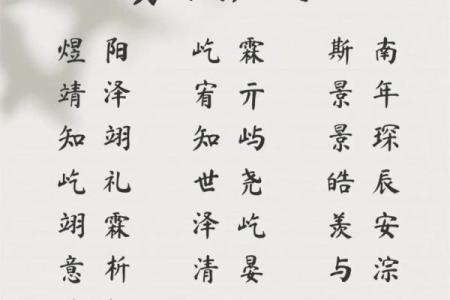 煜阳 屹霖 斯南
靖泽 宥亓 景年
知翊 知屿 景琛
屹礼 世尧 皓辰
翊霖 泽屹 羡安
意析 清晏 与淙